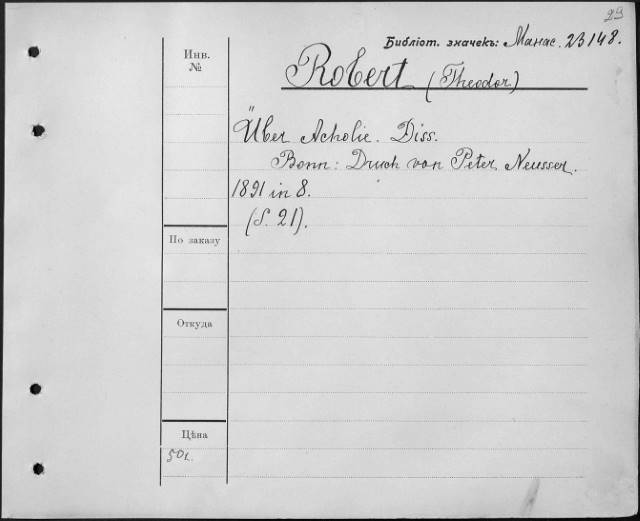 29
Библіот. значекъ: Манас. 23148.
Инв.
№
Robert (Theodor)
Über Acholie. Diss.
Bonn: Druck von Peter Neusser.
1891 in 8.
(S. 21).
По заказу
Откуда
Цѣна
50к.